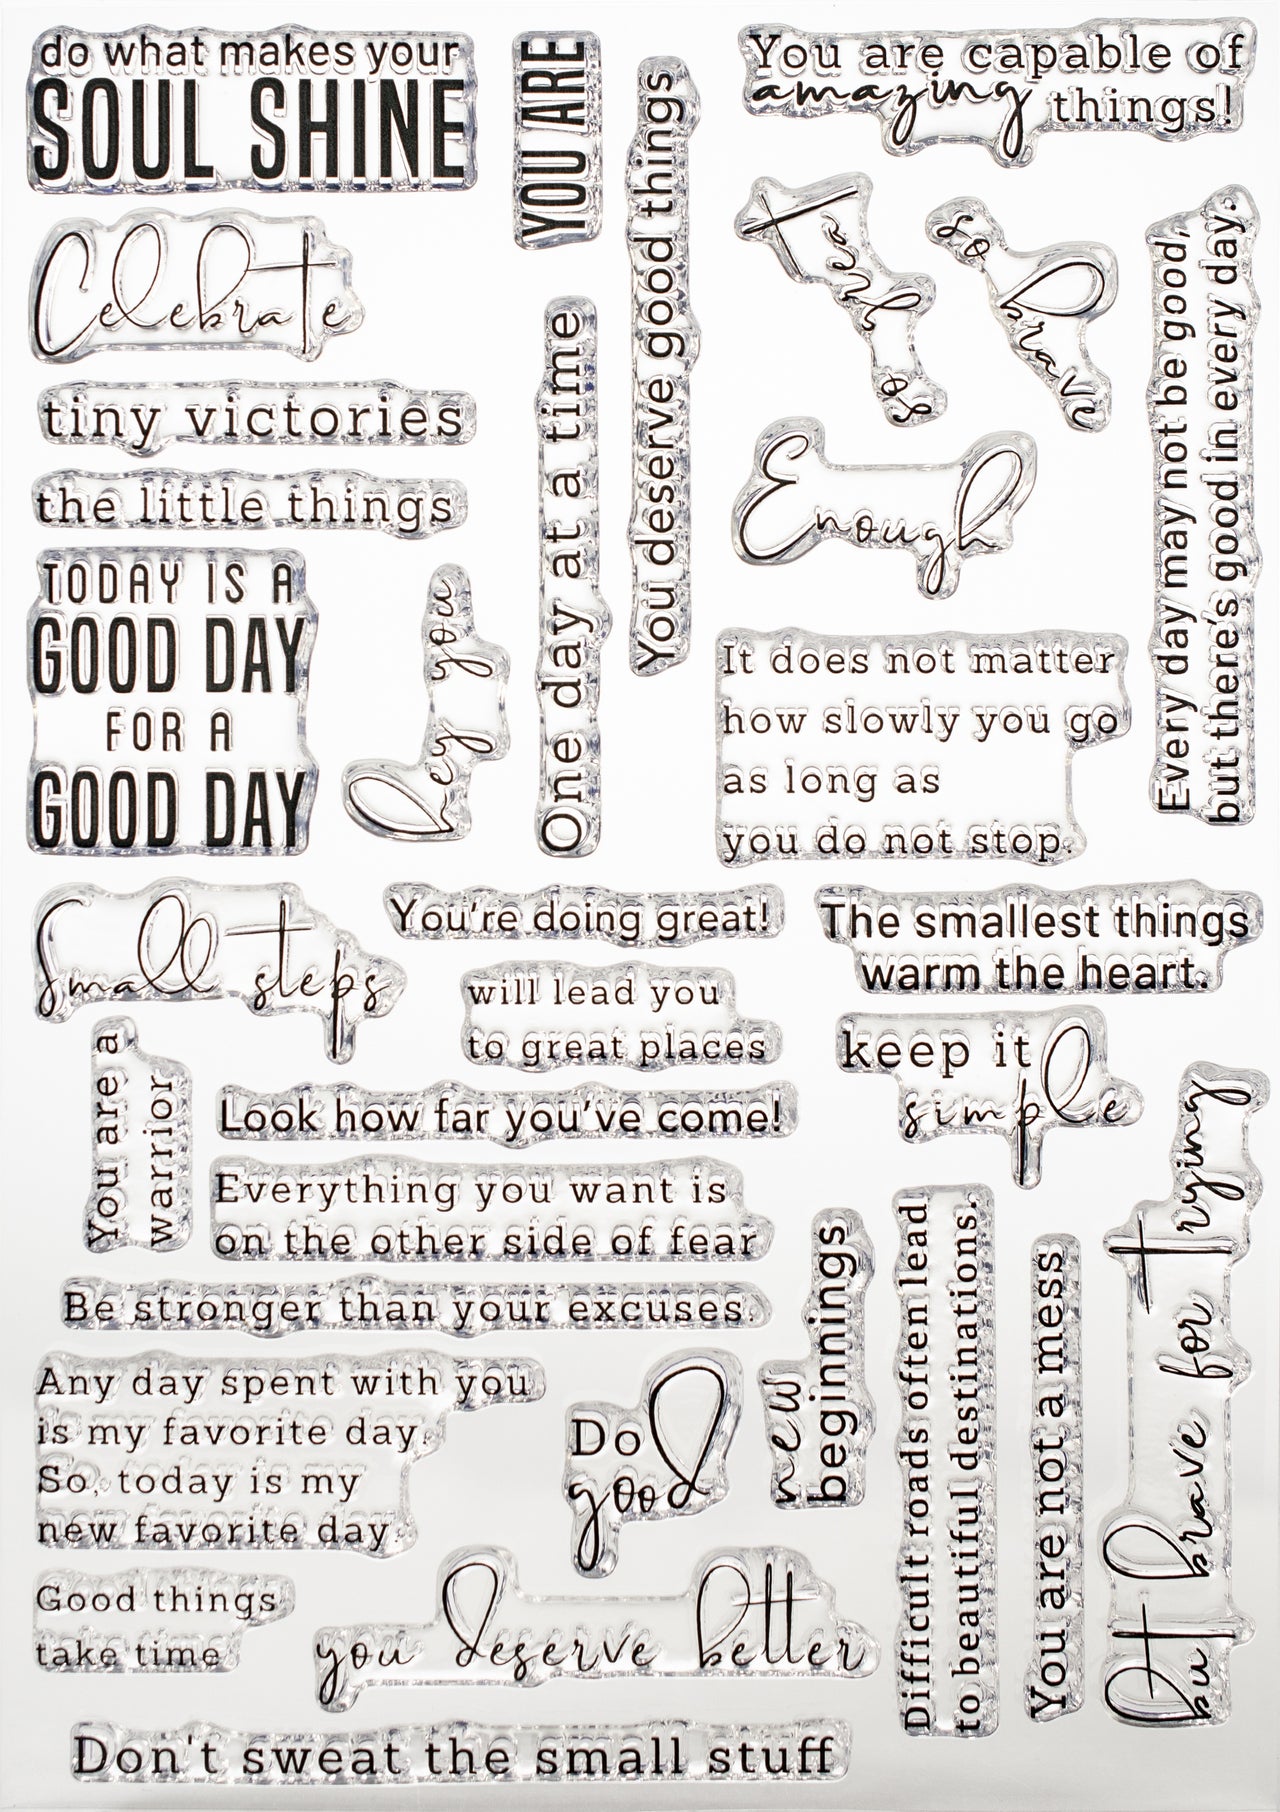 do what makes your
SOUL SHINE
YOU ARE
You deserve good things
You are capable of
amazing things!
Celebrate
tiny victories
the little things
One day at a time
so
brave
Enough
Every day may not be good,
but there's good in every day.
TODAY IS A
GOOD DAY
FOR A
GOOD DAY
hey you
It does not matter
how slowly you go
as long as
you do not stop.
Small steps
You're doing great!
will lead you
to great places
The smallest things
warm the heart.
keep it
simple
You are a
warrior
Look how far you've come!
Everything you want is
on the other side of fear
Be stronger than your excuses.
Any day spent with you
is my favorite day.
So, today is my
new favorite day.
Do
good
new
beginnings
Difficult roads often lead
to beautiful destinations.
You are not a mess
but brave for trying
Good things
take time
you deserve better
Don't sweat the small stuff